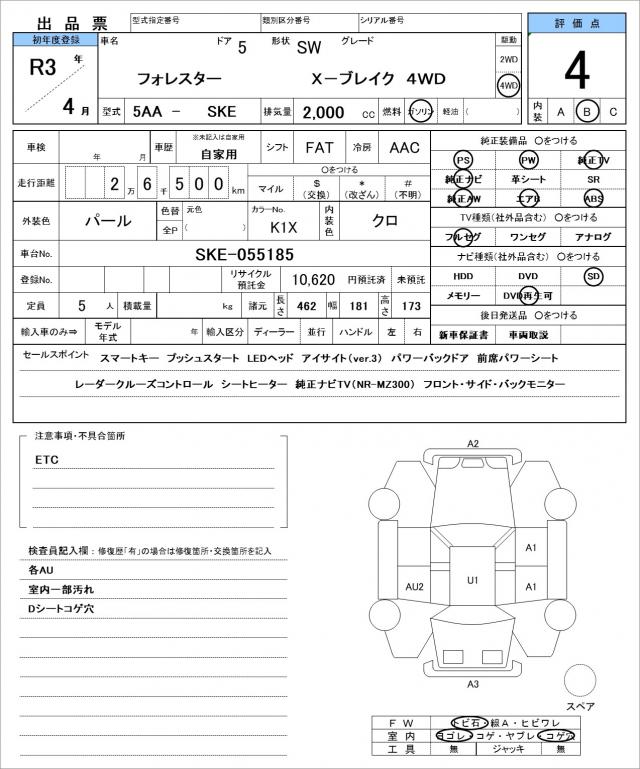 出品票 型式指定番号 類別区分番号 シリアル番号 評価点
初年度登録 車名 ドア 5 形状 SW グレード 駆動
R3 年 フォレスター X－ブレイク 4WD 2WD 4
4 月 4WD
型式 5AA － SKE 排気量 2,000 cc 燃料 ガソリン 軽油 ( ) 内装 A B C
車検 年 月 車歴 ※未記入は自家用 自家用 シフト FAT 冷房 AAC 純正装備品 〇をつける
PS PW 純正TV
走行距離 2 万 6 千 5 0 0 km 〇をつける マイル $ (交換) * (改ざん) # (不明) 純正ナビ 革シート SR
純正AW エアB ABS
外装色 パール 色替 全P 元色 ( ) カラーNo. K1X 内装色 クロ TV種類(社外品含む) 〇をつける
フルセグ ワンセグ アナログ
車台No. SKE-055185 ナビ種類(社外品含む) 〇をつける
登録No. リサイクル預託金 10,620 円預託済 未預託 HDD DVD SD
定員 5 人 積載量 kg 諸元 長さ 462 幅 181 高さ 173 メモリー DVD再生可
後日発送品 〇をつける
輸入車のみ⇒ モデル年式 年 輸入区分 ディーラー 並行 ハンドル 左 右 新車保証書 車両取説
セールスポイント スマートキー プッシュスタート LEDヘッド アイサイト(ver.3) パワーバックドア 前席パワーシート
レーダークルーズコントロール シートヒーター 純正ナビTV(NR-MZ300) フロント・サイド・バックモニター
注意事項・不具合箇所
ETC
検査員記入欄：修復歴「有」の場合は修復箇所・交換箇所を記入
各AU
室内一部汚れ
Dシートコゲ穴
A2
A1
AU2 U1 A1
A3
スペア
FW トビ石・線A・ヒビワレ
室内 ヨゴレ・コゲ・ヤブレ・コゲ穴
工具 無 ジャッキ 無